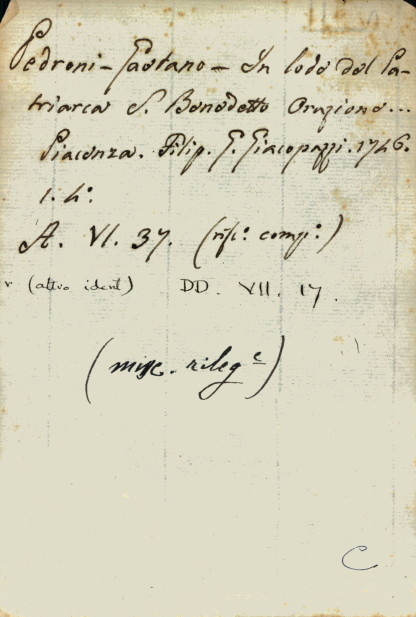 Pedroni - Gaetano - In lode del Pa-
triarca S. Benedetto Orazione...
Piacenza. Filip. G. Giacopazzi. 1746.
1. 4º.
A. VI. 37. (risº. compº.)
v (altro ident) DD. VII. 17.
(misc. rilegᵉ)
C